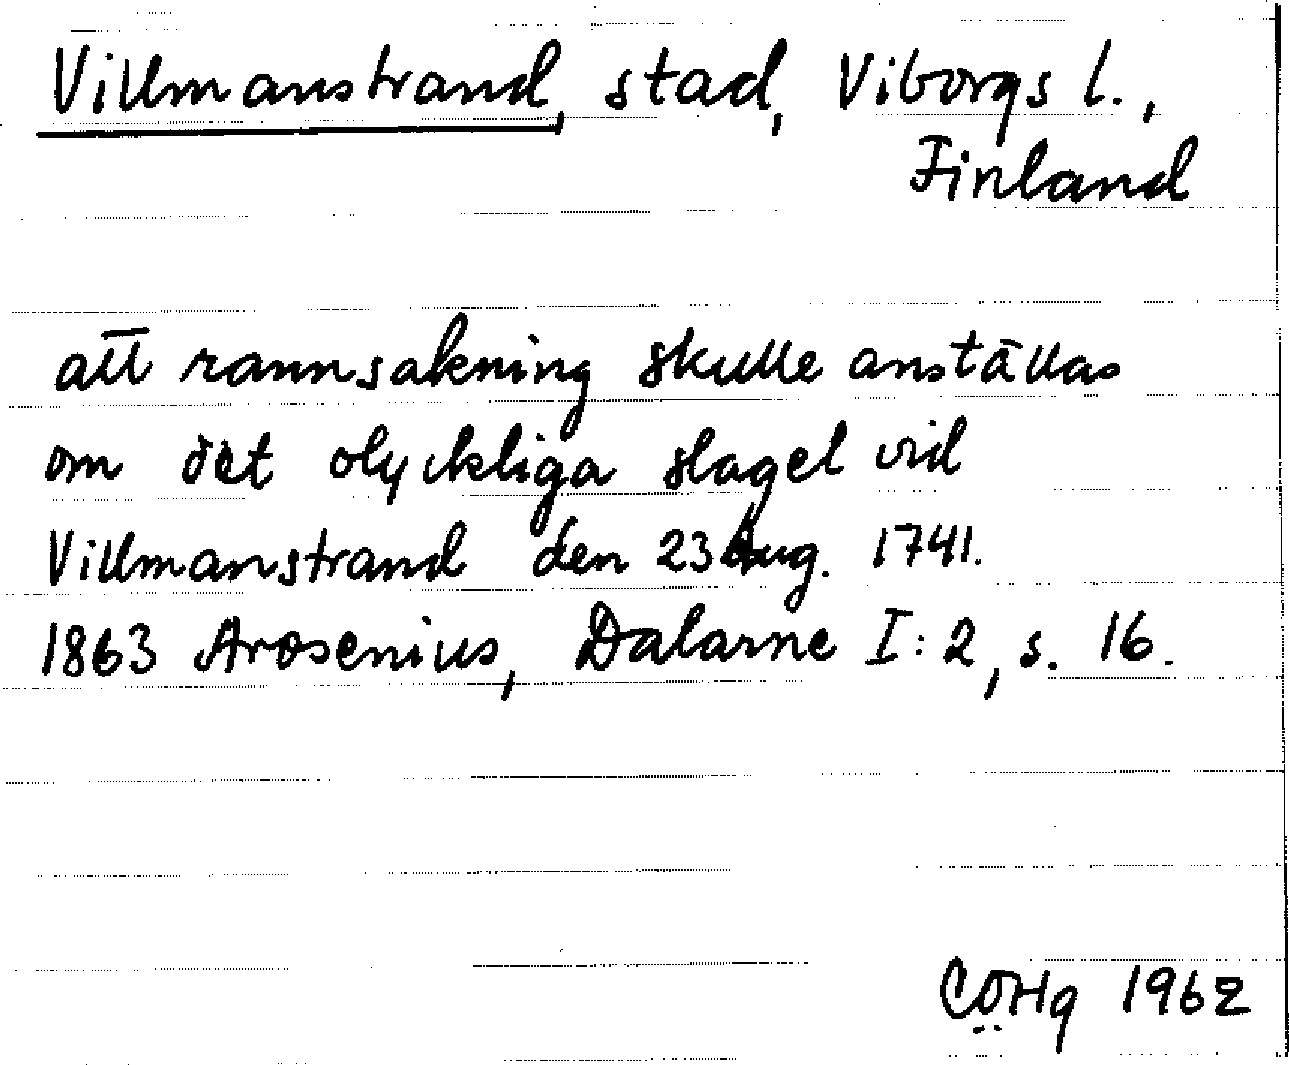 Villmanstrand, stad, Viborgs l.,
Finland
att rannsakning skulle anställas
om det olyckliga slaget vid
Villmanstrand den 23 Aug. 1741.
1863 Arosenius, Dalarne I:2, s. 16.
CÖHg 1962